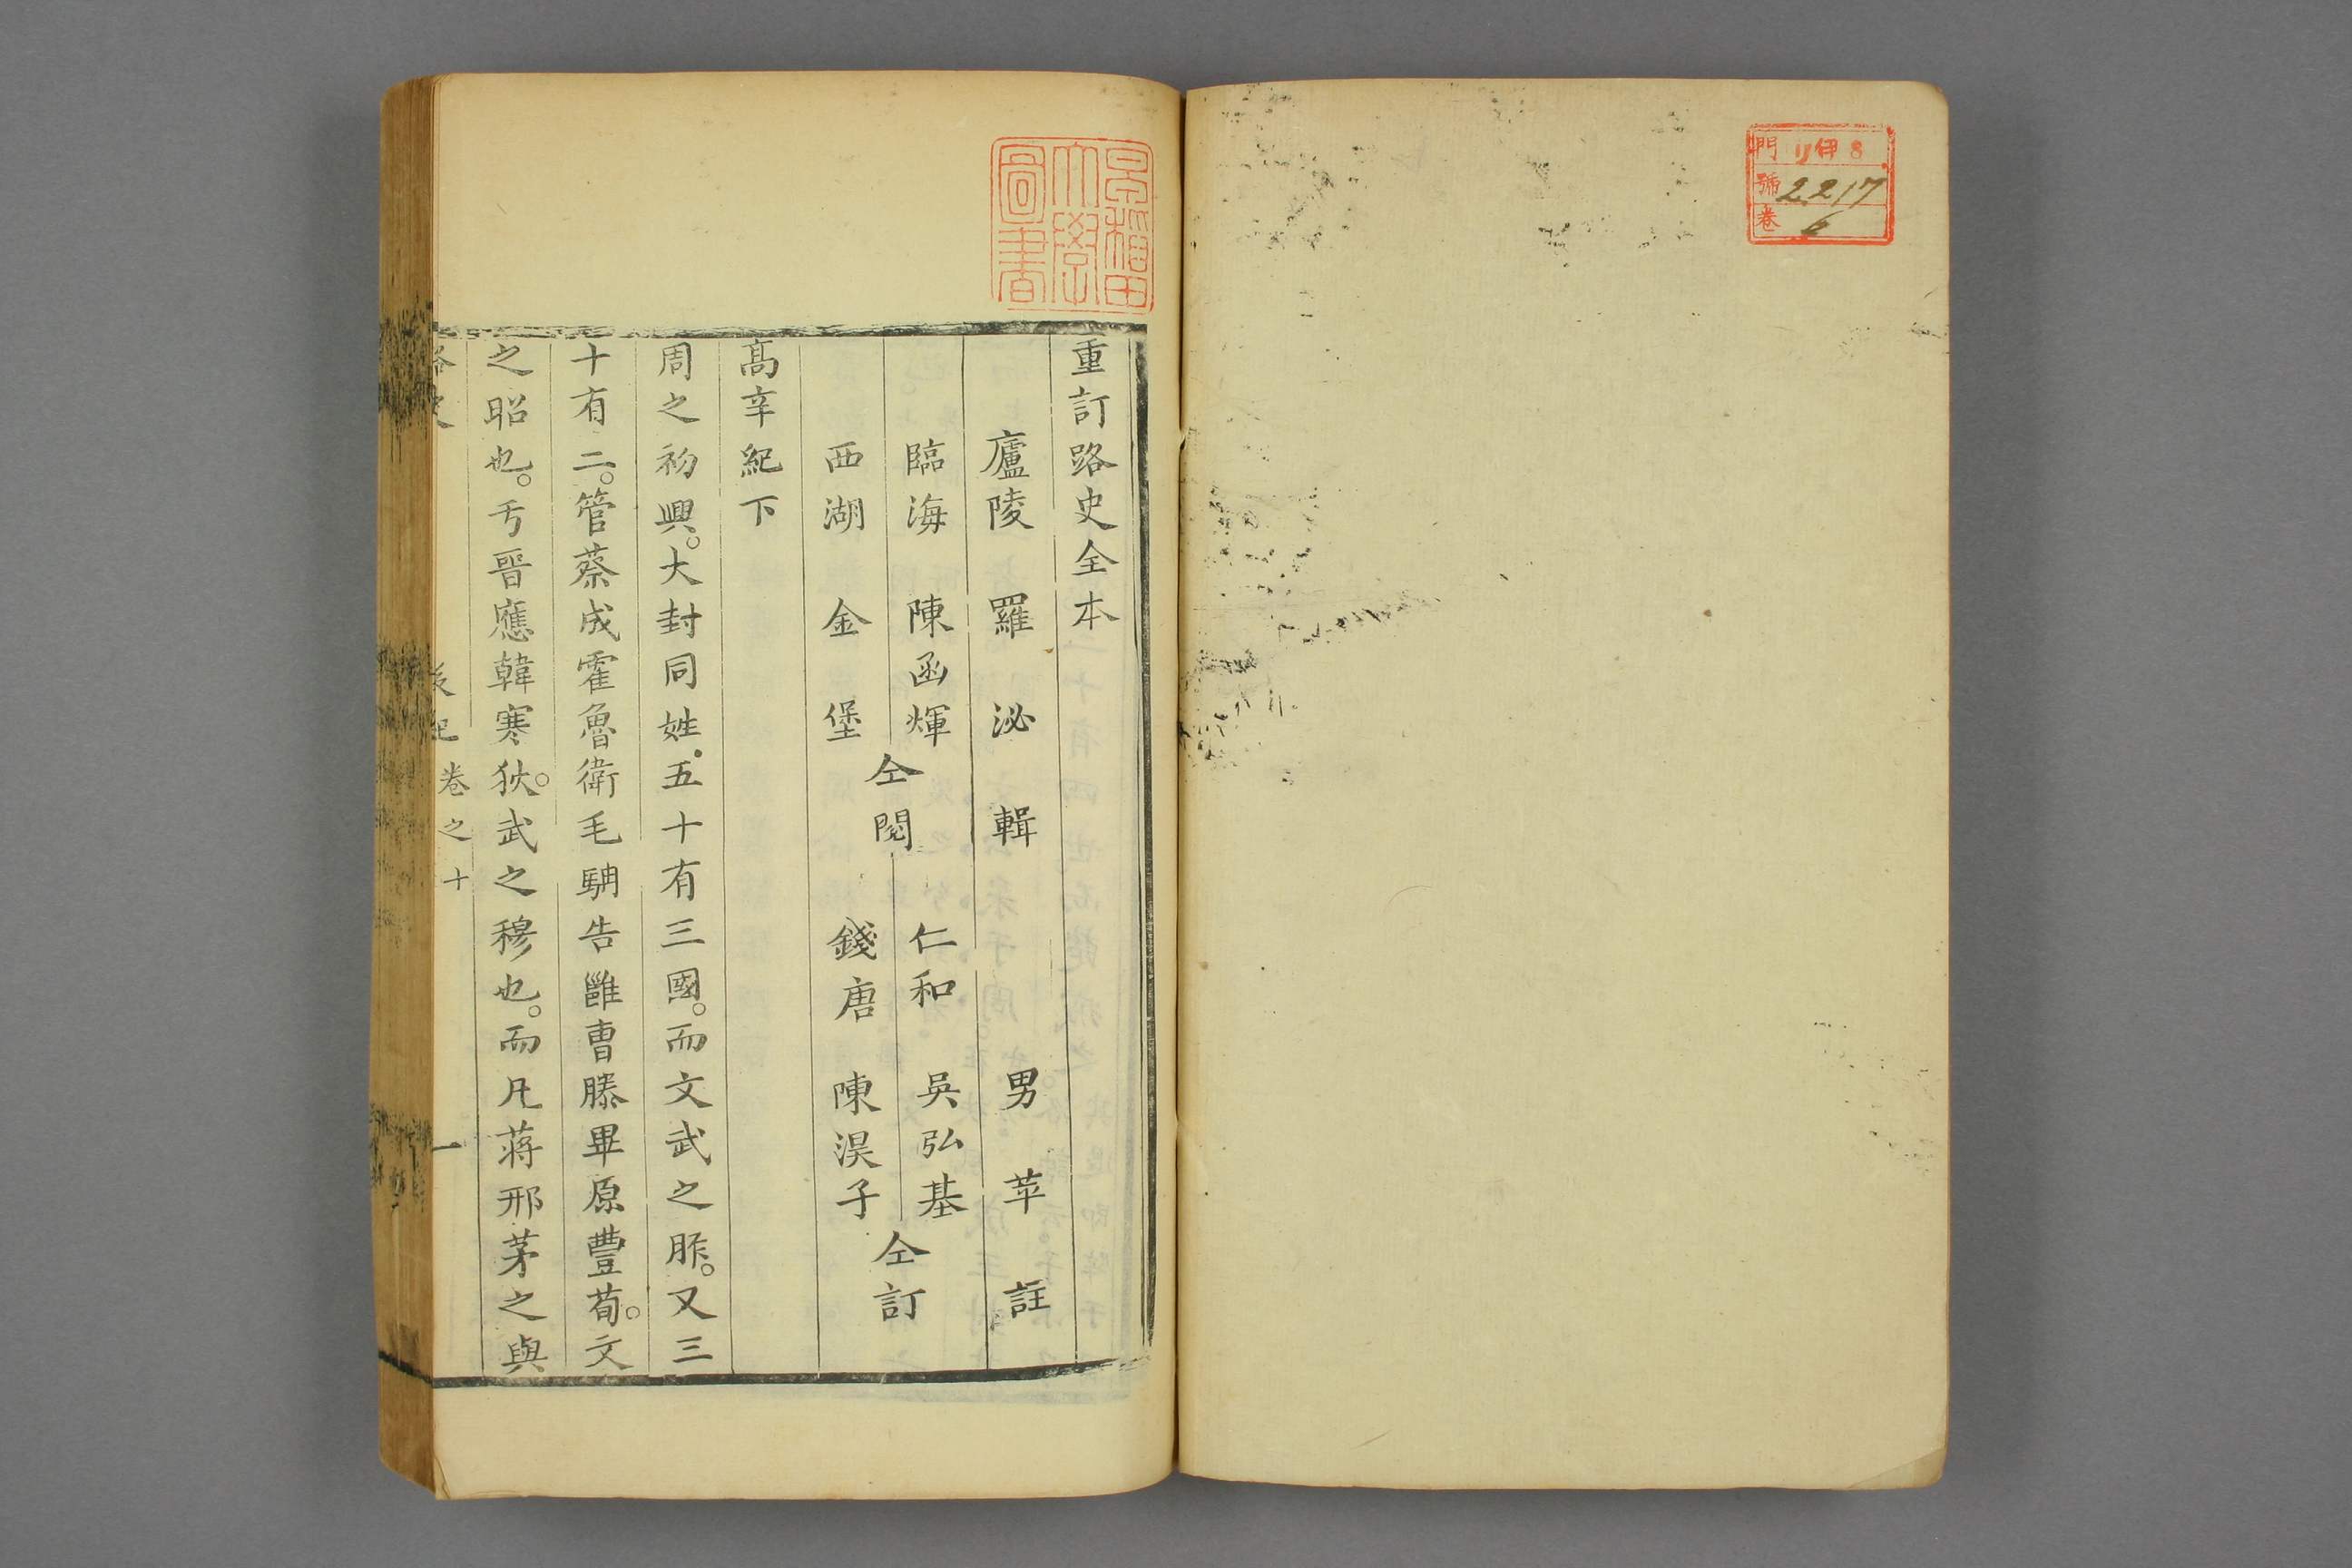 門 リ伊8
號 2217
卷 6
早稲田
大學
圖書
重訂路史全本
廬陵 羅泌輯 男苹註
臨海 陳函煇
西湖 金堡
仝閱
仁和 吳弘基
錢唐 陳淏子
仝訂
髙辛紀下
周之初興。大封同姓.五十有三國。而文武之胙。又三
十有二。管蔡成霍魯衛毛聃告雝曺滕畢原豐荀。文
之昭也。亐晉應韓寒狄。武之穆也。而凡蔣邢茅之與
路史 後紀 卷之十 一